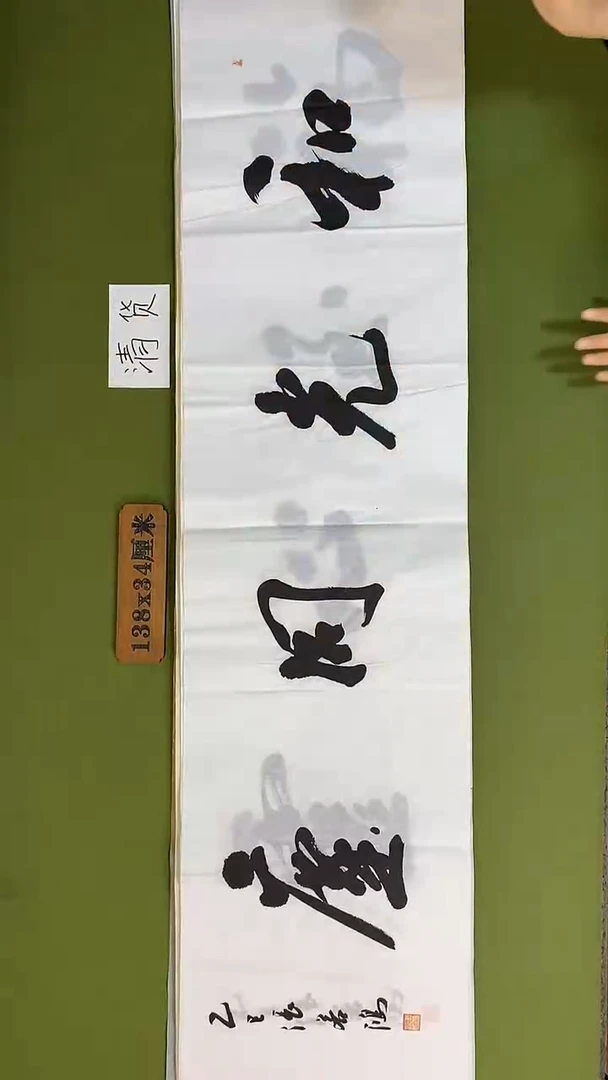 和光同塵
乙巳
清货
138x34厘米